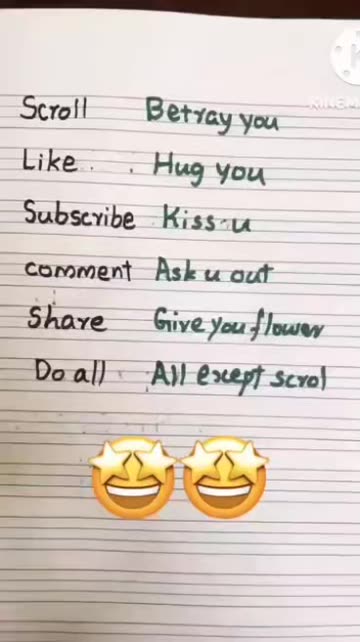 Scroll Betray you
Like Hug you
Subscribe Kiss u
comment Ask u out
Share Give you flower
Do all All except scrol